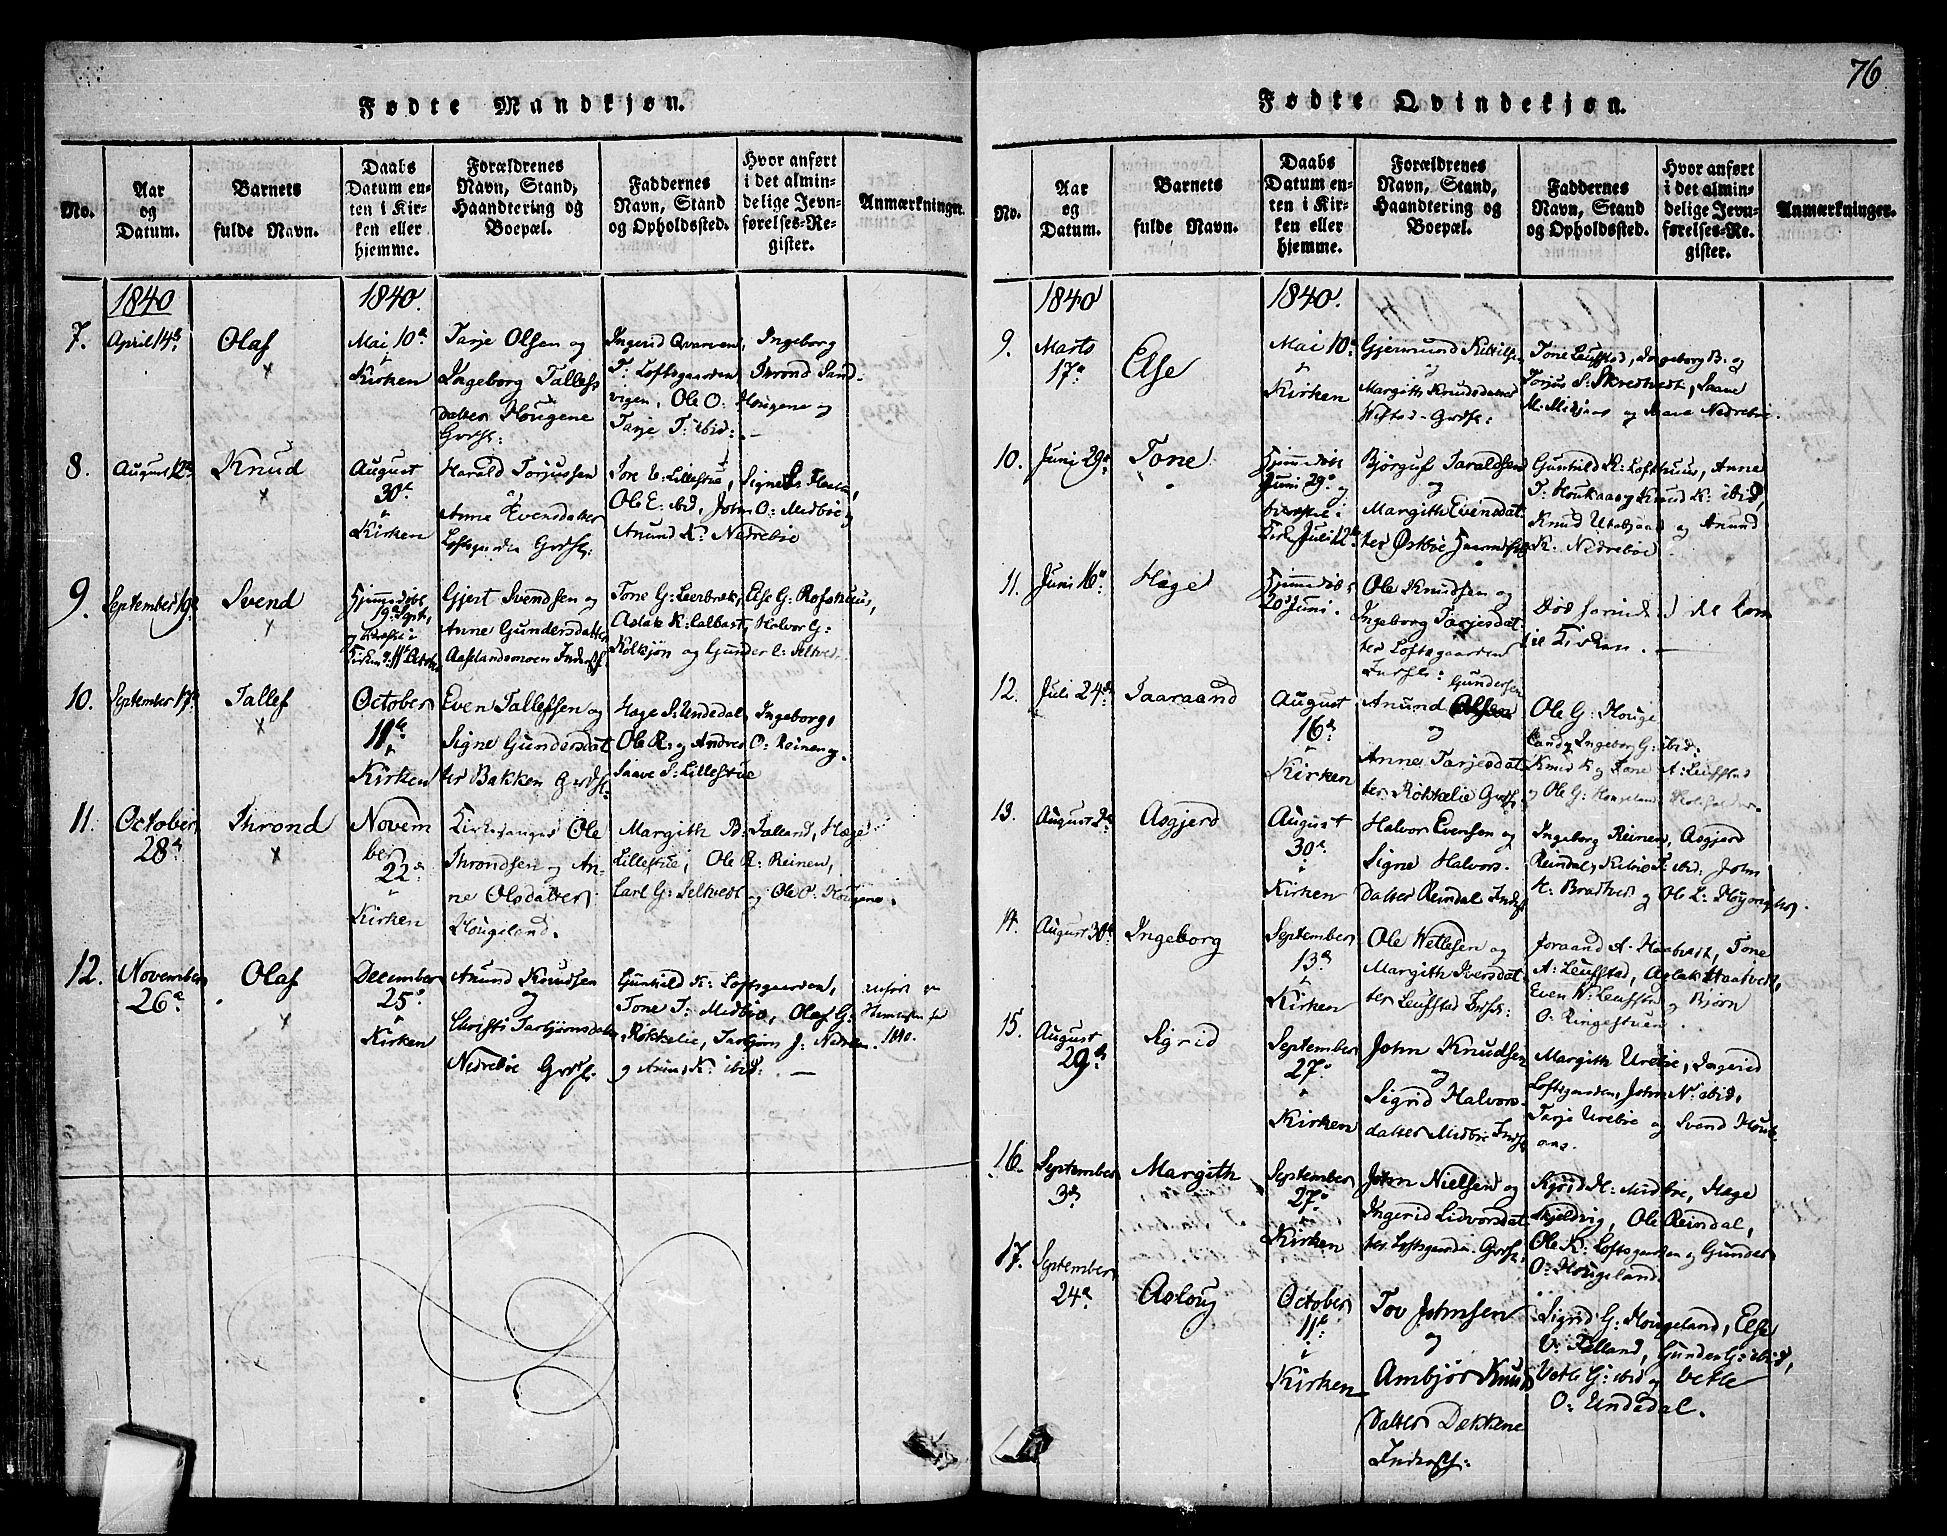 76
Fødte Mandkjøn.
No.
Aar
og
Datum.
Barnets
fulde Navn.
Daabs
Datum en-
ten i Kir-
ken eller
hjemme.
Forældrenes
Navn, Stand,
Haandtering og
Boepæl.
Faddernes
Navn, Stand
og Opholdssted.
Hvor anført
i det almin-
delige Jevn-
førelses-Re-
gister.
Anmærkninger.
1840
1840.
7.
April 14de
Olaf
×
Mai 10de
i
Kirken
Tarje Olsen og
Ingeborg Tallefs
datter Hougene
Grdfl:
Ingerid Qvarven, Ingeborg
T. Loftsgaarden Thrond Sand-
vigen, Ole O: Hougene og
Tarje T: ibid:
8.
August 12te
Knud
×
August
30te
i
Kirken
Harald Torjussen
og
Anne Evensdatter
Loftsgarden Grdfl:
Tore E: Lillestue, Signe
Ole E: ibid, John O: Midbøe og
Anund K: Nedrebøe
9.
September 19de
Svend
×
Hjemmedøbt
19de Sept.
Kirken 11te October
Gjert Svendsen og
Anne Gundersdatter
Aaslandsmoen Inderst
Tone G: Leerbrek, Else G: Rofshuus,
Aslak K: Kalbast, Halvor G:
Kolkjøn og Gunder E: Seltvedt
10.
September 17de
Tallef
×
October
11te
i
Kirken
Even Tallefsen og
Signe Gundersdat
ter Bakken Grdfl:
Hæge S: Undedal, Ingeborg,
Ole R: og Andres O: Reinen og
Saave S: Lillestue
11.
October
28de
Thrond
×
Novem
ber
22de
i
Kirken
Kirkesanger Ole
Throndsen og An-
ne Olsdatter
Hougeland.
Margith B: Talland, Hæge
Lillestue, Ole R: Reinen,
Carl G: Seltvedt og Ole O: Hougene.
12.
November
26de
Olaf
×
December
25de
i
Kirken
Anund Knudsen
og
Christi Tarbjørnsdatter
Nedrebøe Grdfl:
Gunhild K: Loftsgaarden,
Tone T: Midbøe, Olaf G:
Røkkelie, Tarbjørn J: Nedrebøe
og Anund K: ibid:
1840.
Fødte Qvindekjøn.
No.
Aar
og
Datum.
Barnets
fulde Navn.
Daabs
Datum en-
ten i Kir-
ken eller
hjemme.
Forældrenes
Navn, Stand,
Haandtering og
Boepæl.
Faddernes
Navn, Stand
og Opholdssted.
Hvor anført
i det almin-
delige Jevn-
førelses-Re-
gister.
Anmærkninger.
1840
1840.
9.
Marts
17de
Else
Mai 10de
i
Kirken
Gjermund Kittilsen
Margith Knudsdatter
Grdfl:
Tone Leufstad, Ingeborg B: og
Torjus S: Skredtvedt, Saave
og Nedrebøe
10.
Juni 29de
Tone
Hjemmedøbt
Juni 29de og
Kirk. Juli 12te
Bjørguf Taraldsen
og
Margith Evensdat
ter Østbøe
Gunhild K: Lofthuus, Anne
T: Houkaas og Knud K: ibid,
Knud Utabjaae og Anund
K: Nedrebøe
11.
Juni 16de
Hæge
Hjemmedøbt
20de Juni.
Ole Knudsen og
Ingeborg Tarjesdat
ter Loftsgaarden
Død forinden det kom
til Kirken.
12.
Juli 24de
Taaraand
August
16de
i
Kirken
Anund Gundersen
og
Anne Tarjesdat
ter Røkkelie Grdfl:
Ole G: Houge
Ingeborg G: ibid:
Knud K: og Tone A: Leufstad
og Ole G: Hougeland
13.
August 2de
Asgjerd
August
30te
i
Kirken
Halvor Evensen og
Signe Halvors-
datter Reindal Inderst
Ingeborg Reinen, Asgjerd
Reindal, ibid: John
H: Bradtved og Ole L:
14.
August 30te
Ingeborg
September
13de
i
Kirken
Ole Wetlesen og
Margith Iversdat
ter Leufstad
Joraand A: Haatvedt, Tone
A: Leufstad, Aslak Haatvedt,
Even W: Leufstad og Bjørn
O: Ringestuen.
15.
August
29de
Sigrid
September
27de
i
Kirken
John Knudsen
og
Sigrid Halvors-
datter Midbøe Inderst
Margith Urebøe, Ingerid
Loftsgaarden, John N: ibid,
Tarje Urebøe og Svend Houk
aas.
16.
September
3de
Margith
September
27de
i
Kirken
John Nielsen og
Ingerid Lidvorsdat
ter Loftsgaarden Grdfl:
Sigrid H: Midbøe, Hæge
Skjeldvig, Ole Reindal,
Ole K: Loftsgaarden og Gunder
O: Hougeland.
17.
September
24de
Asloug
October
11te
i
Kirken
Tov Johnsen
og
Ambjør Knuds
datter Dekkene
Inderst:
Sigrid G: Hougeland, Else
V: Talland, Gunder G: ibid,
Vetle G: ibid og Vetle
O: Undedal.